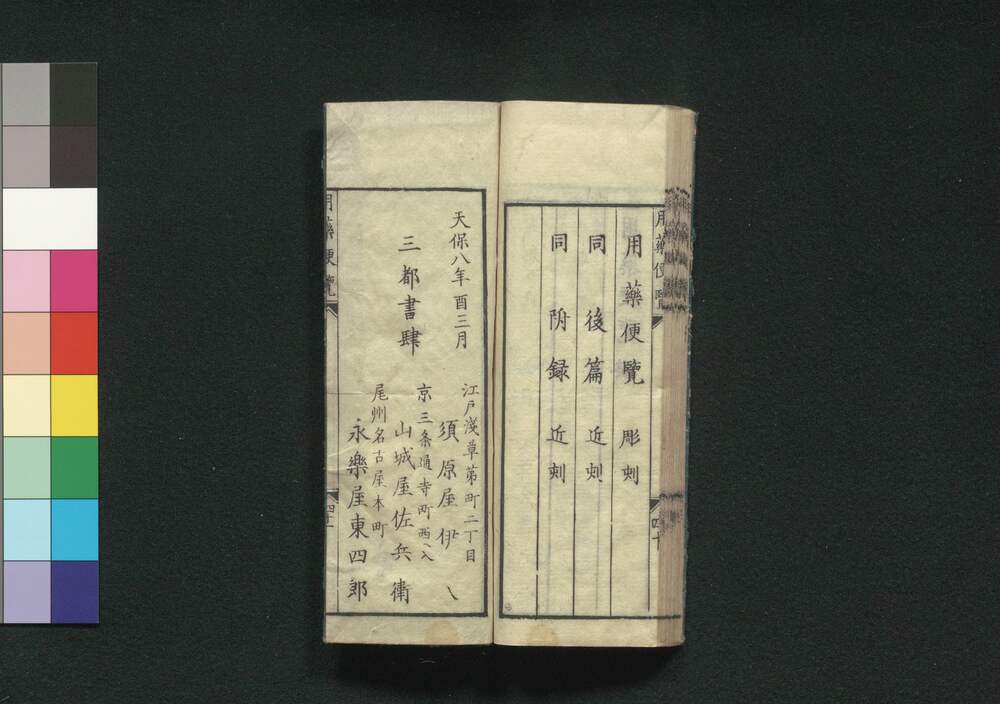 用藥便覽
用藥便覽　彫刻
同　後篇　近刻
同　附録　近刻
四十
天保八年酉三月
三都書肆
江戸淺草茅町二丁目
須原屋伊八
京三条通寺町西ヘ入
山城屋佐兵衛
尾州名古屋本町
永樂屋東四郎
用藥便覽